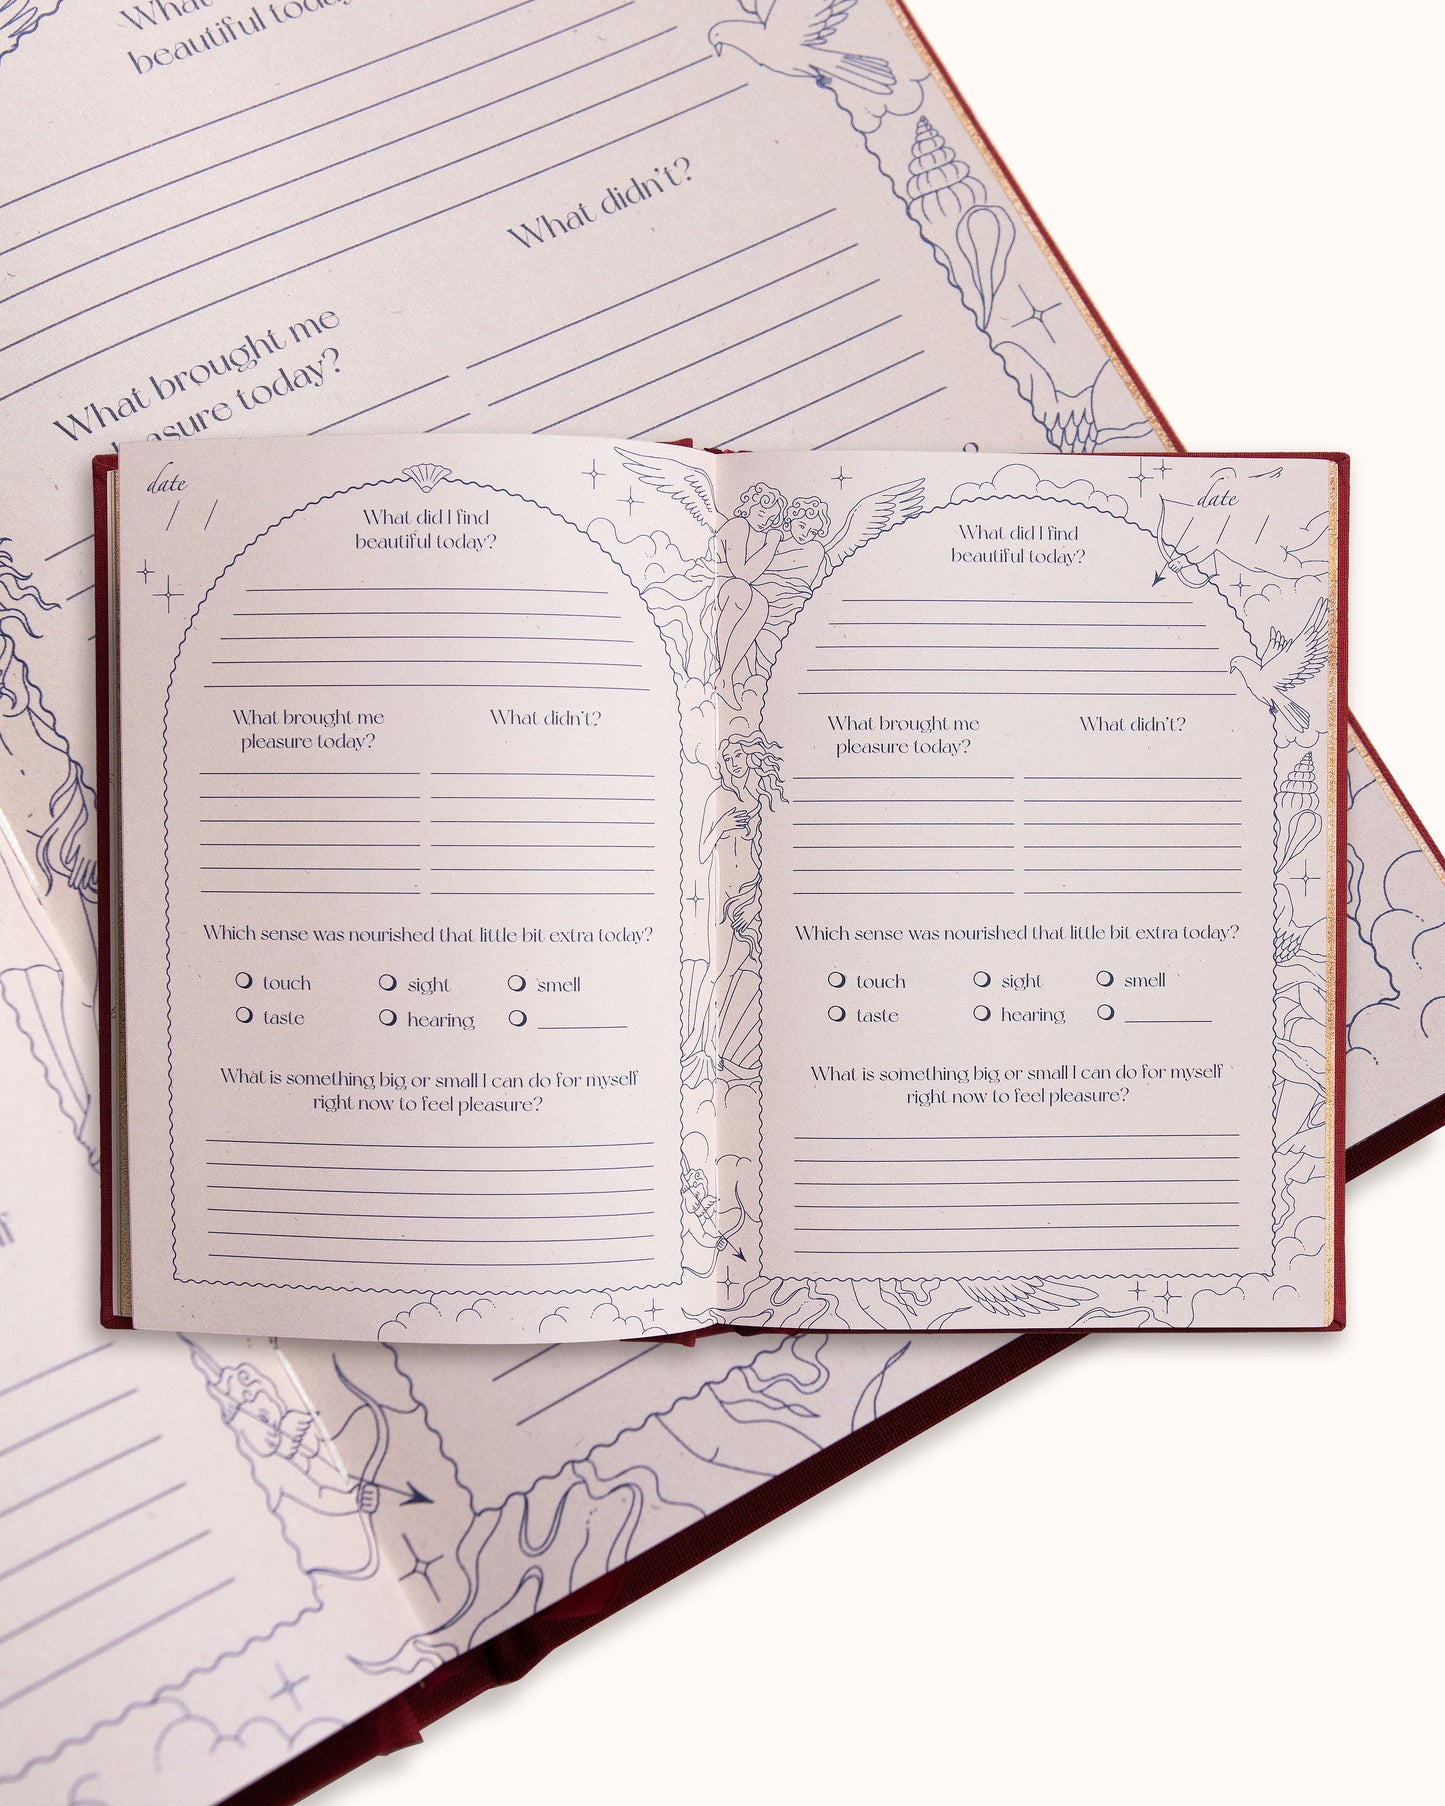 beautiful today?
What didn't?
What brought me
today?
date
/ /
What did I find
beautiful today?
What brought me
pleasure today?
What didn't?
Which sense was nourished that little bit extra today?
touch
sight
smell
taste
hearing
What is something big or small I can do for myself
right now to feel pleasure?
date
/ /
What did I find
beautiful today?
What brought me
pleasure today?
What didn't?
Which sense was nourished that little bit extra today?
touch
sight
smell
taste
hearing
What is something big or small I can do for myself
right now to feel pleasure?